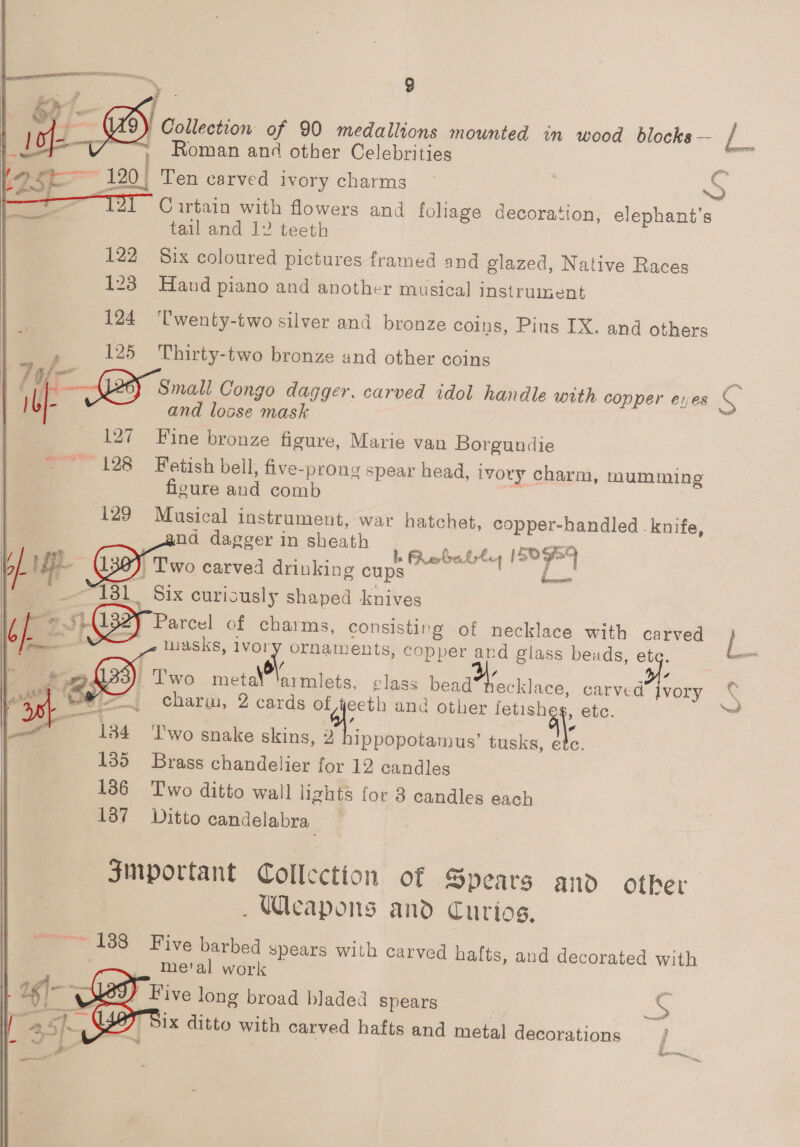 9
10/- 119 Collection of 90 medallions mounted in wood blocks — L
Roman and other Celebrities
25/- 120 Ten carved ivory charms S
121 Curtain with flowers and foliage decoration, elephant's
tail and 12 teeth
122 Six coloured pictures framed and glazed, Native Races
123 Hand piano and another musical instrument
124 Twenty-two silver and bronze coins, Pius IX. and others
125 Thirty-two bronze and other coins
16/- 126 Small Congo dagger, carved idol handle with copper eyes S
and loose mask
127 Fine bronze figure, Marie van Borgundie
128 Fetish bell, five-prong spear head, ivory charm, mumming
figure and comb
129 Musical instrument, war hatchet, copper-handled knife,
and dagger in sheath
130 Two carved drinking cups L
131 Six curiously shaped knives
132 Parcel of charms, consisting of necklace with carved L
masks, ivory ornaments, copper and glass beads, etc.
133 Two metal armlets, glass bead necklace, carved ivory S
30/- charm, 2 cards of teeth and other fetishes, etc.
134 Two snake skins, 2 hippopotamus' tusks, etc.
135 Brass chandelier for 12 candles
136 Two ditto wall lights for 3 candles each
137 Ditto candelabra
Important Collection of Spears and other
Weapons and Curios.
138 Five barbed spears with carved hafts, and decorated with
metal work
139 Five long broad bladed spears S
25/- 140 Six ditto with carved hafts and metal decorations